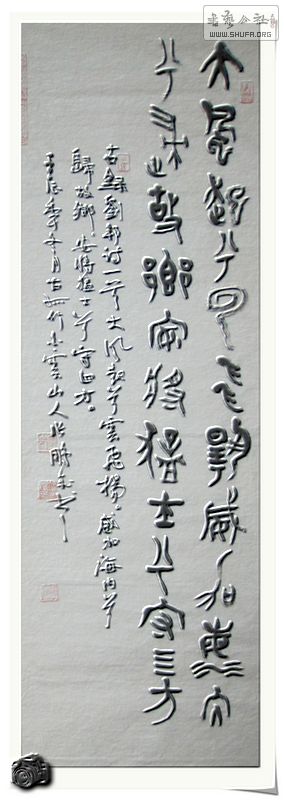 書藝公社
WWW.SHUFA.ORG
大風起兮雲飛揚威加海內
兮歸故鄉安得猛士兮守亖方
劉邦詩一首大風起兮雲飛揚。威加海内兮
歸故鄉。安得猛士兮守四方。
壬辰季冬月小雲山人張